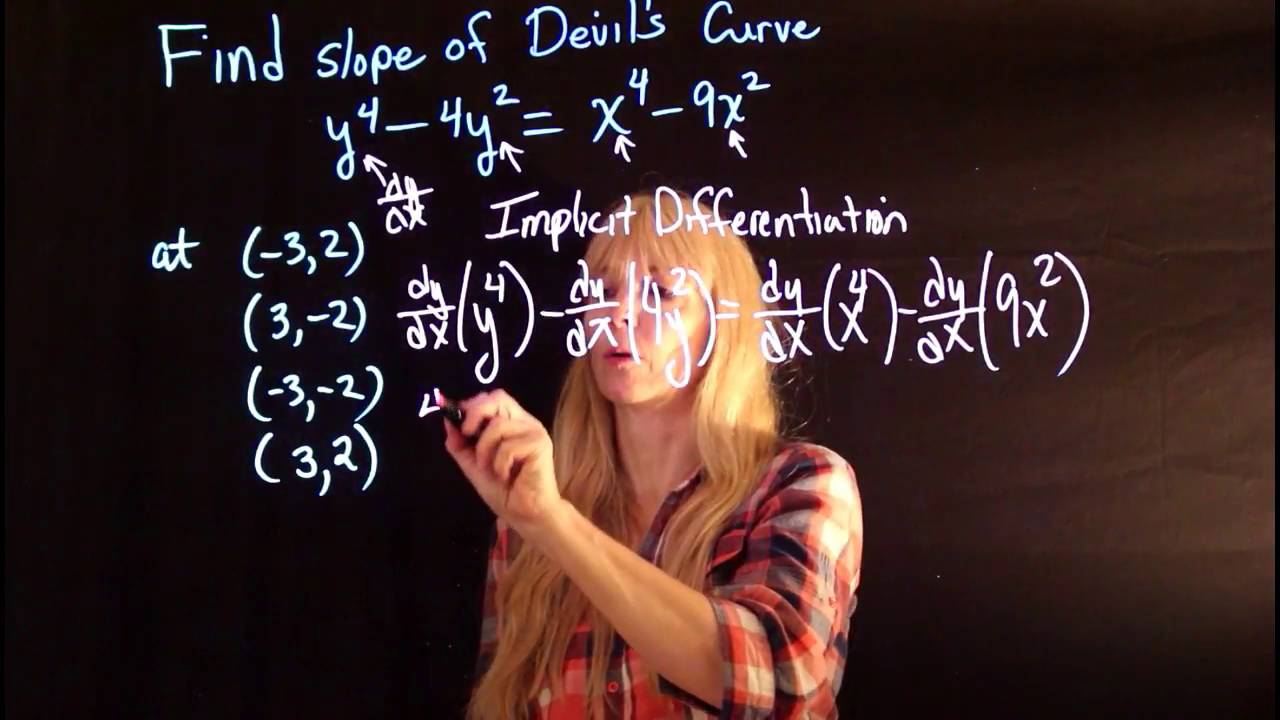 Find slope of Devil's Curve
y⁴ − 4y² = x⁴ − 9x²
dy/dx
Implicit Differentiation
at (-3,2)
(3,-2)
(-3,-2)
(3,2)
dy/dx (y⁴) − dy/dx (4y²) = dy/dx (x⁴) − dy/dx (9x²)
4